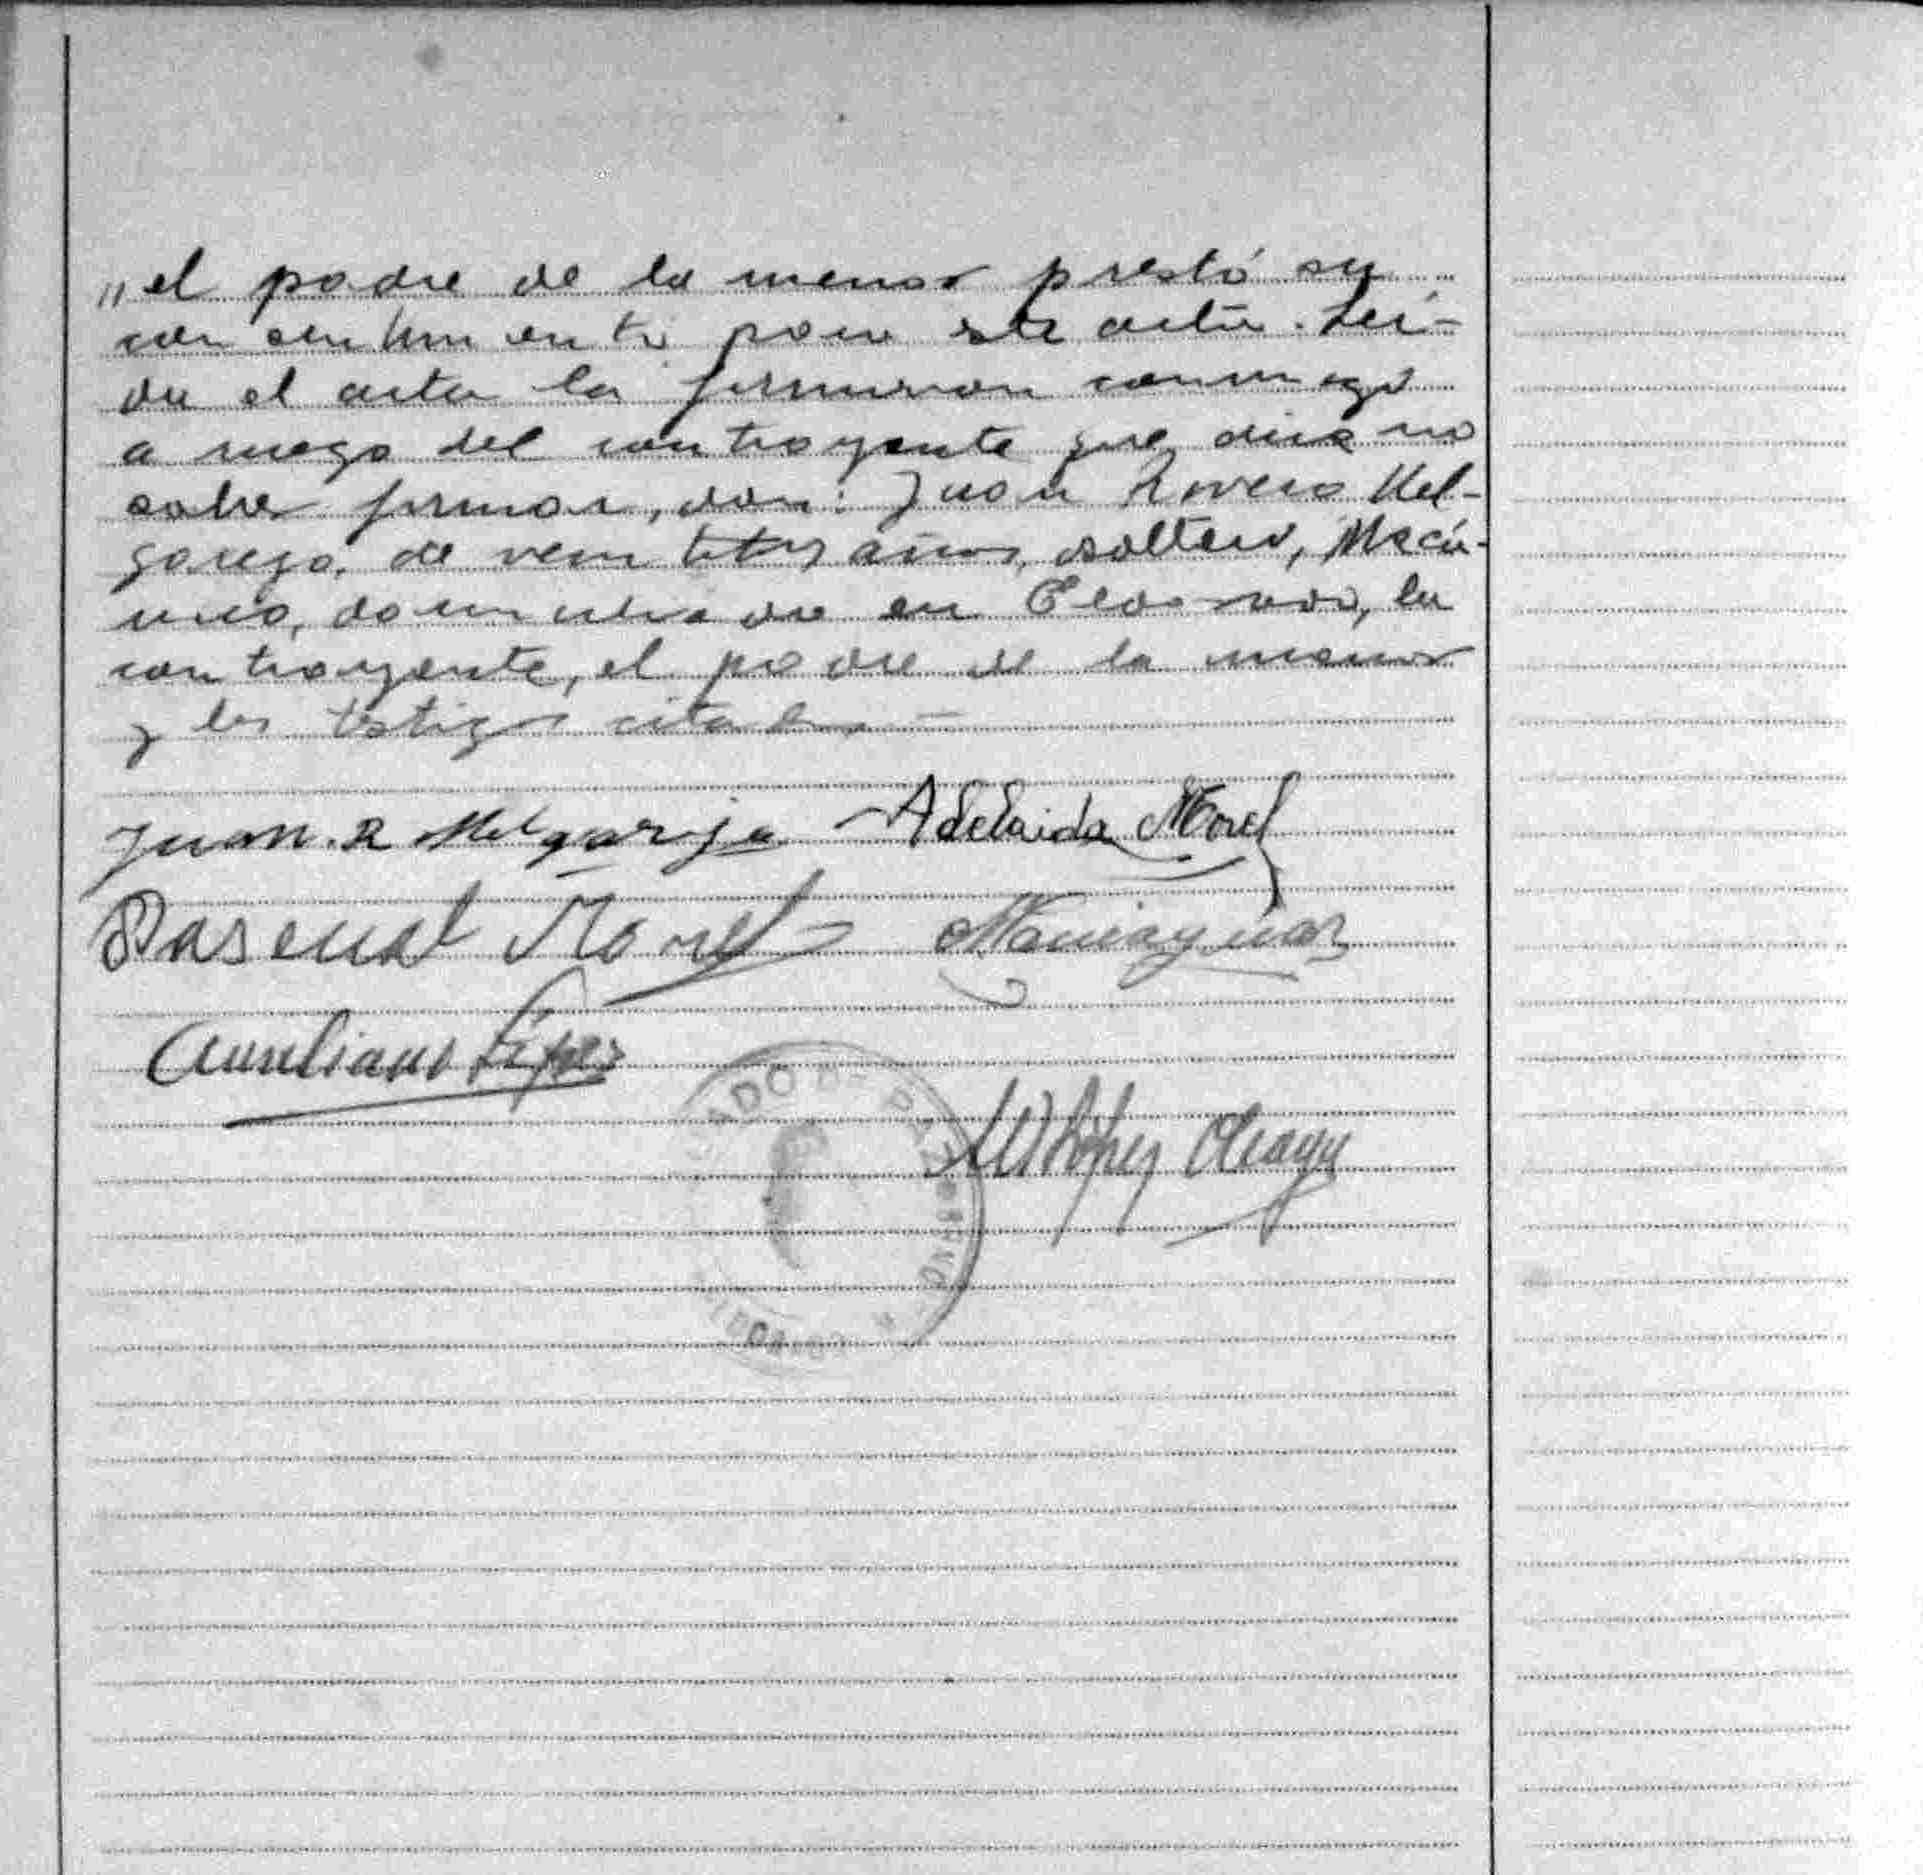 "el padre de la menor prestó su
consentimiento para este acto. Leí-
da el acta la firmaron conmigo
a ruego del contrayente que dice no
saber firmar, don: Juan Romero Mel-
garejo, de veintitres años, soltero, Mecá-
nico, domiciliado en Eldorado, la
contrayente, el padre de la menor
y los testigos citados,—
Juan. R Melgarejo Adelaida Morel
Pascual Morel
Aureliano López
López
JUZGADO DE PAZ
ELDORADO